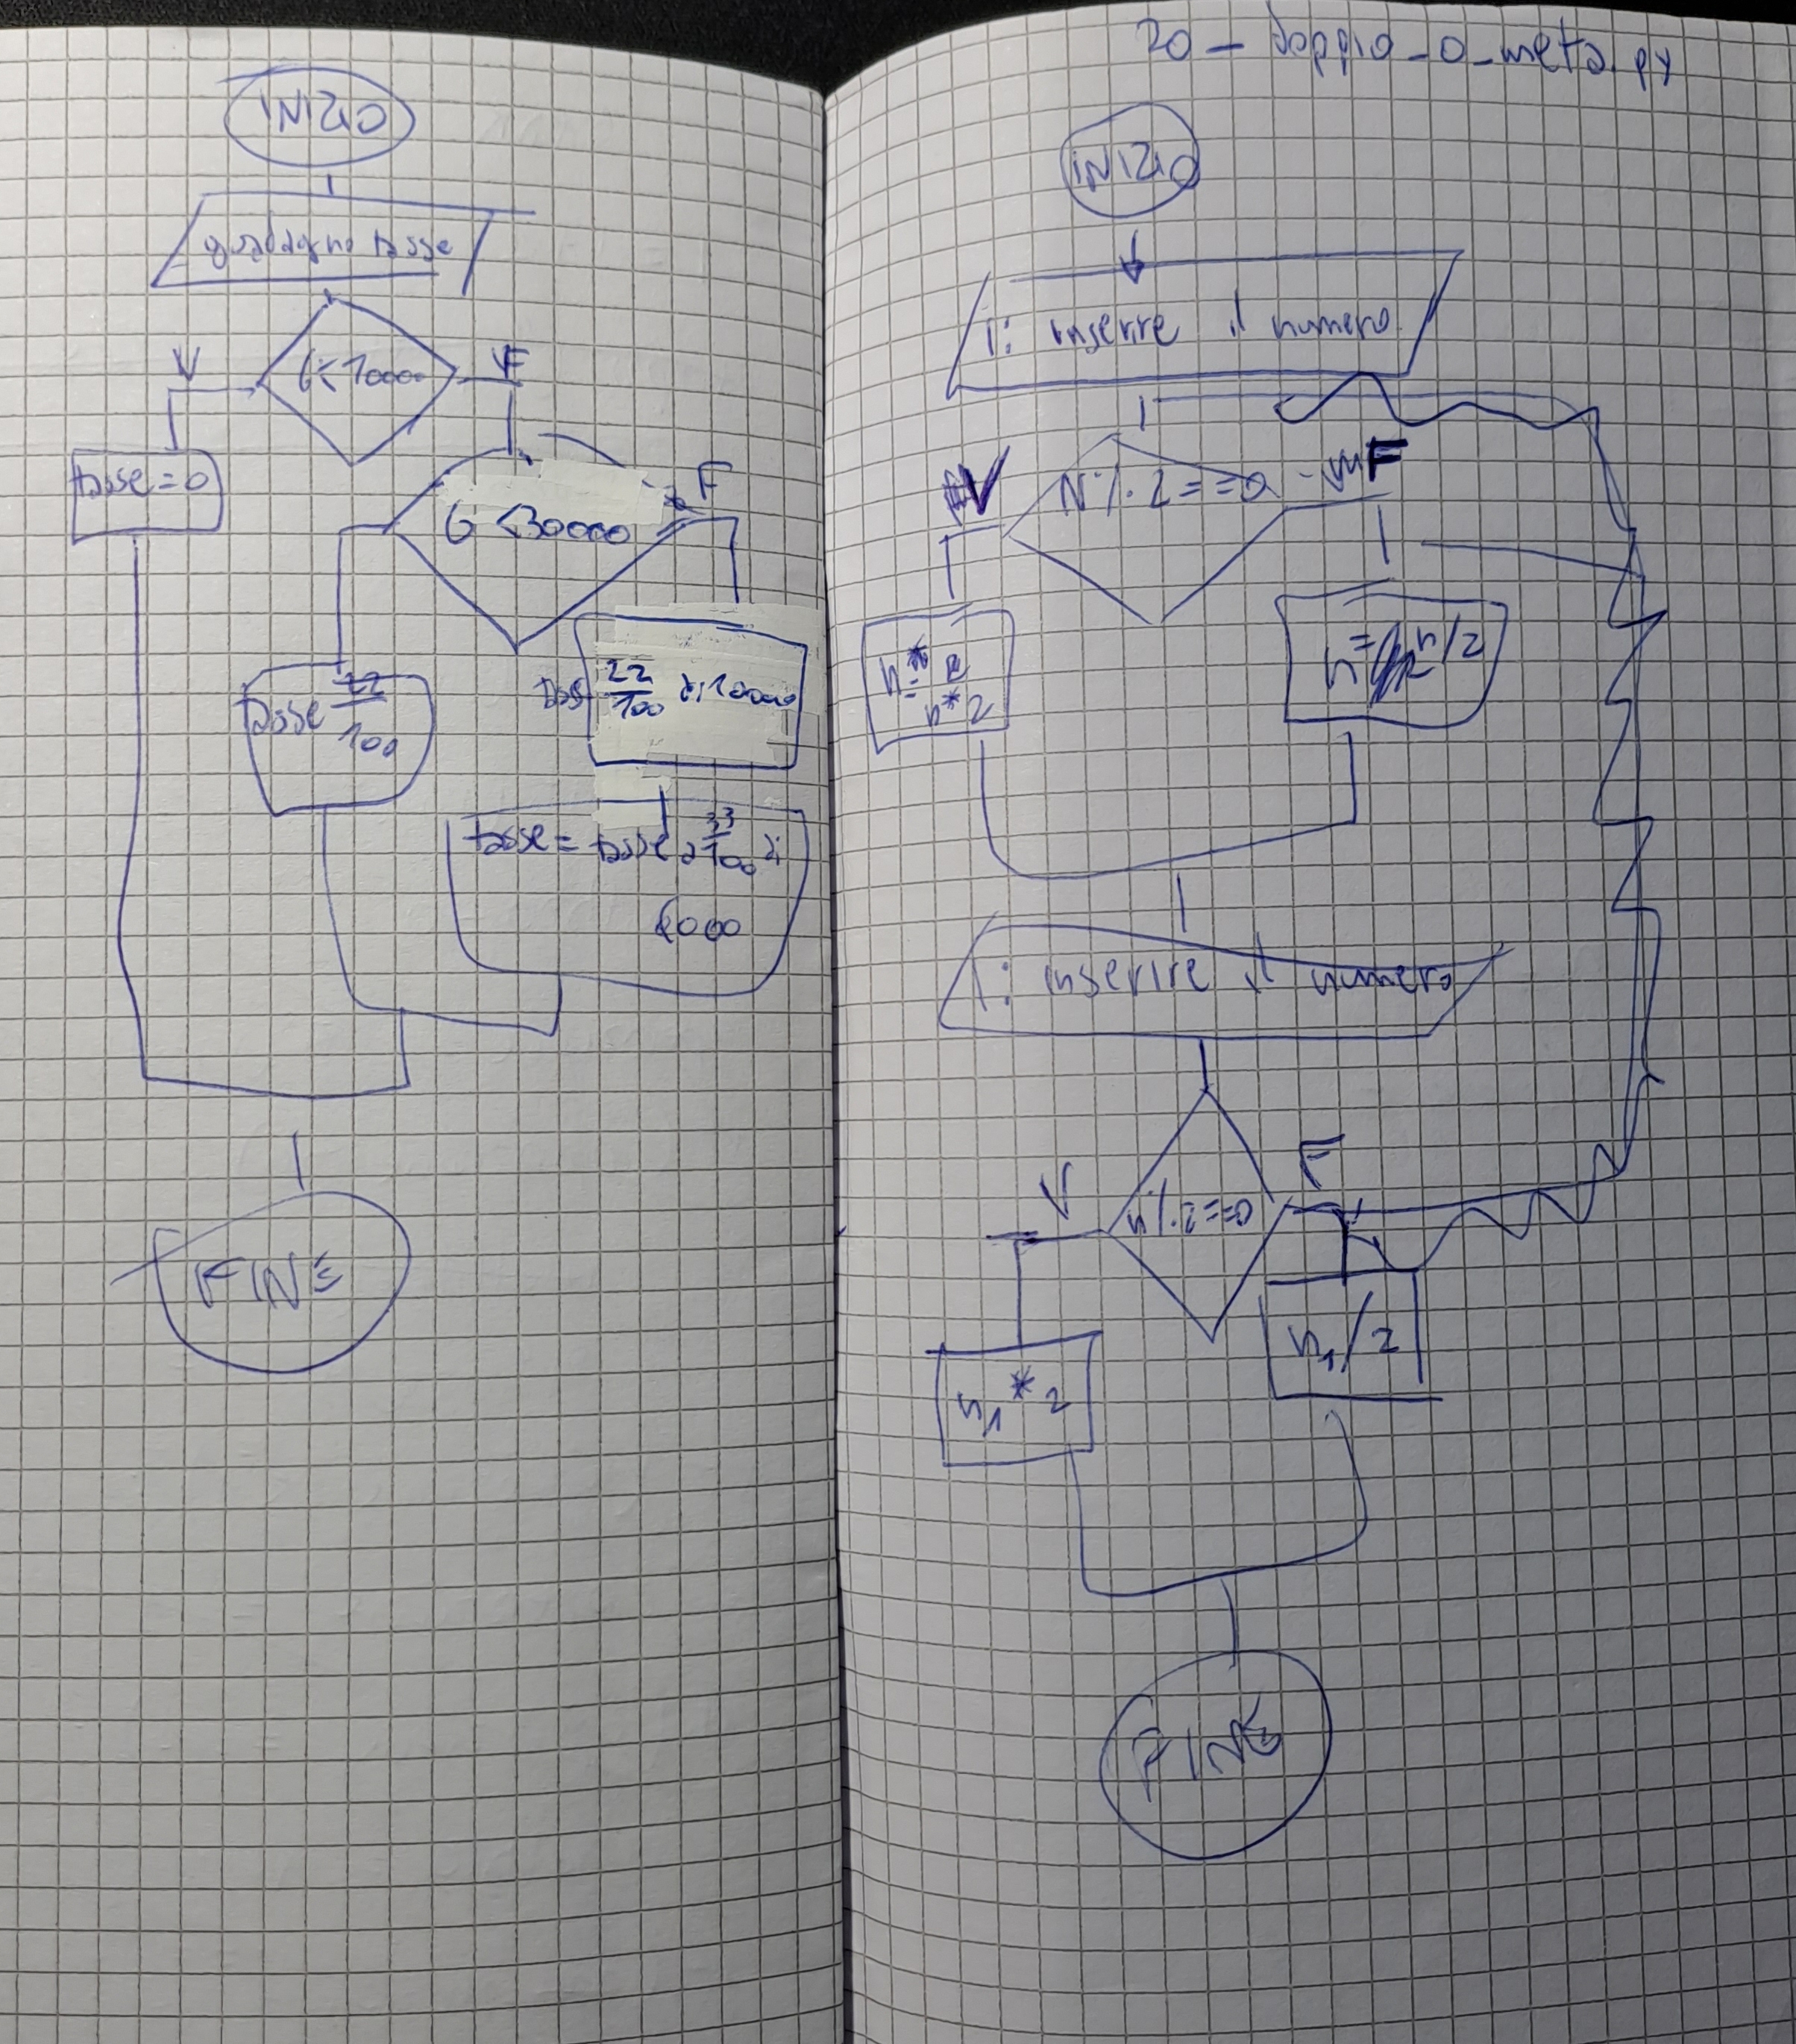 INIZIO
guadagno tasse
V
F
G<10000
tasse=0
F
G <30000
tasse 22
100
22
100 di 10000
tasse = tasse 33
100 di
6000
FINE
20 - doppio_o_meta.py
INIZIO
i: inserire il numero
V
N % 2 == 0
F
n =
n*2
n = n/2
i: inserire il numero
V
n % 2 == 0
F
n1 * 2
n1 / 2
FINE